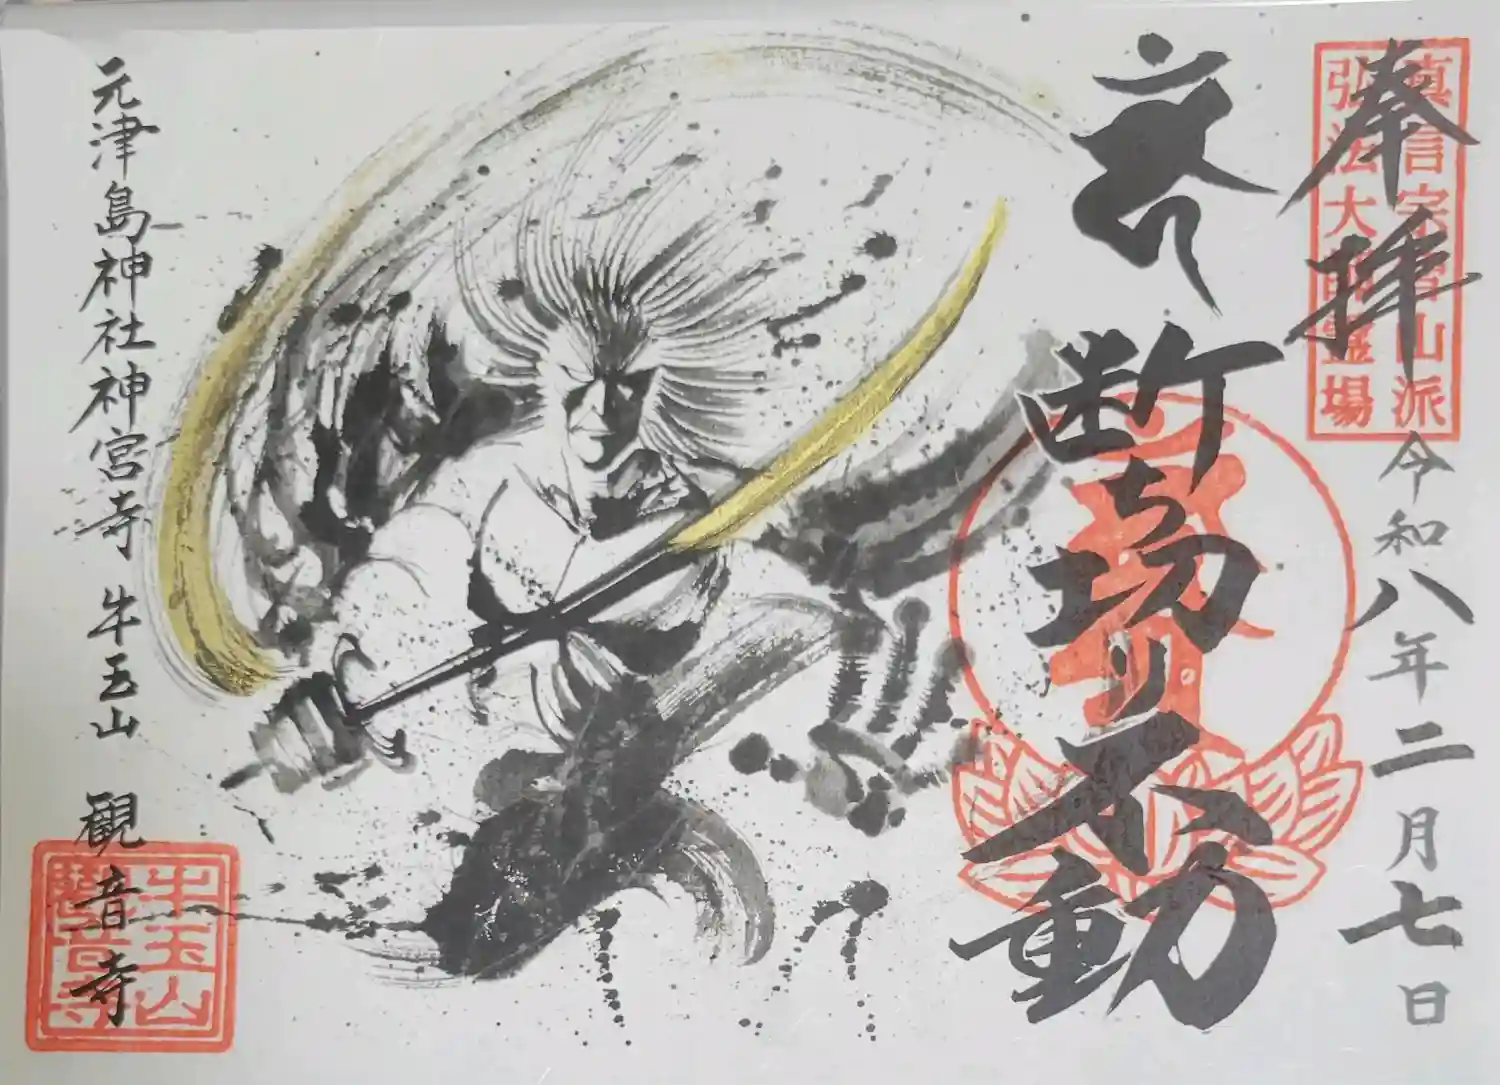 奉拝
真言宗智山派
弘法大師霊場
令和八年二月七日
断ち切り不動
元津島神社神宮寺 牛玉山 観音寺
牛玉山
観音寺